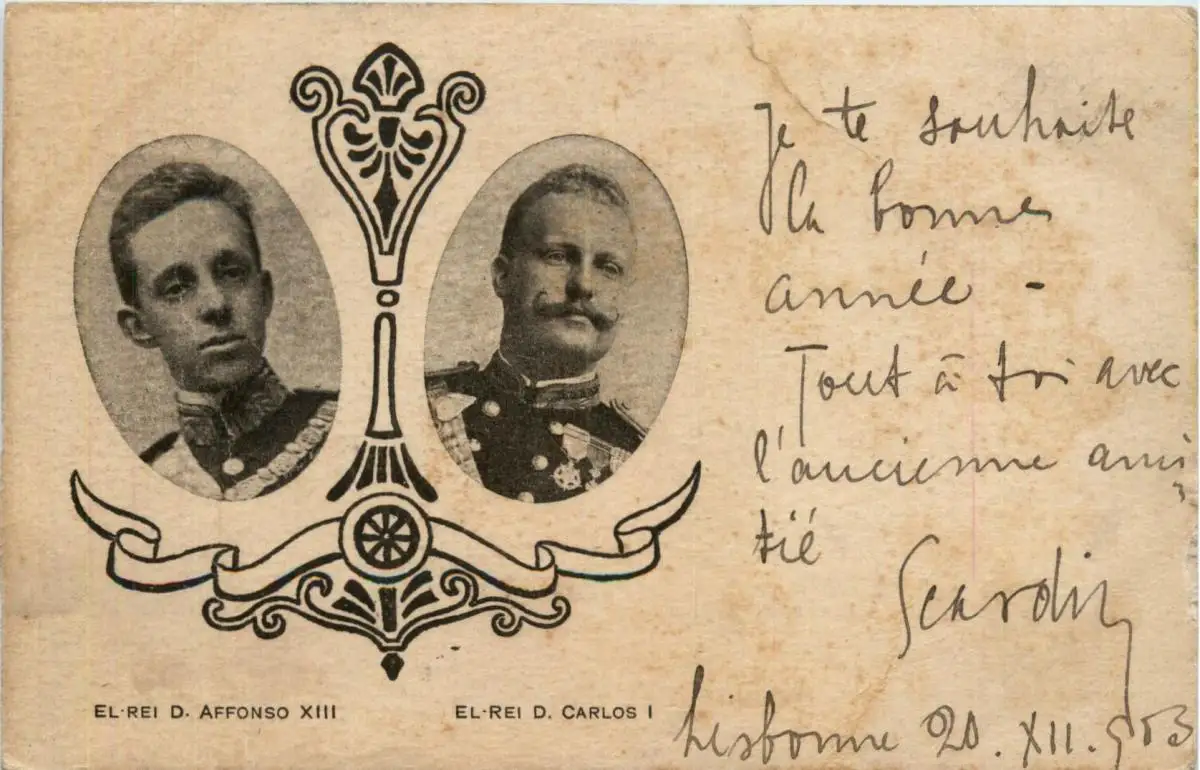 EL-REI D. AFFONSO XIII
EL-REI D. CARLOS I
Je te souhaite
la bonne
année -
Tout à toi avec
l'ancienne ami
tié
Lisbonne 20. XII. 903